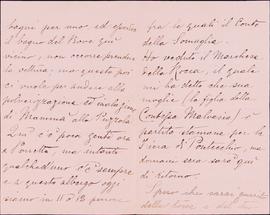 bagni per uno ed essendo
il bagno del Bove qui
vicino, non occorre prendere
la vettura; ma questa poi
ci vuole per andare alla
polverizzazione ed inalazione
di Mammà alla Puzzola
Qui c'è poca gente ora
a Porretta, ma intanto
qualcheduno c'è sempre
e a questo albergo oggi
siamo in 11 o 12 persone
fra le quali il Conte
della Somaglia.
Ho veduto il Marchese
della Rosa, il quale
mi ha detto che sua
moglie (la figlia della
Contessa Malvasia) è
partita stamane per la
Fiera di Pontecchio, ma
domani sera sarà qui
di ritorno.
Spero che sarai